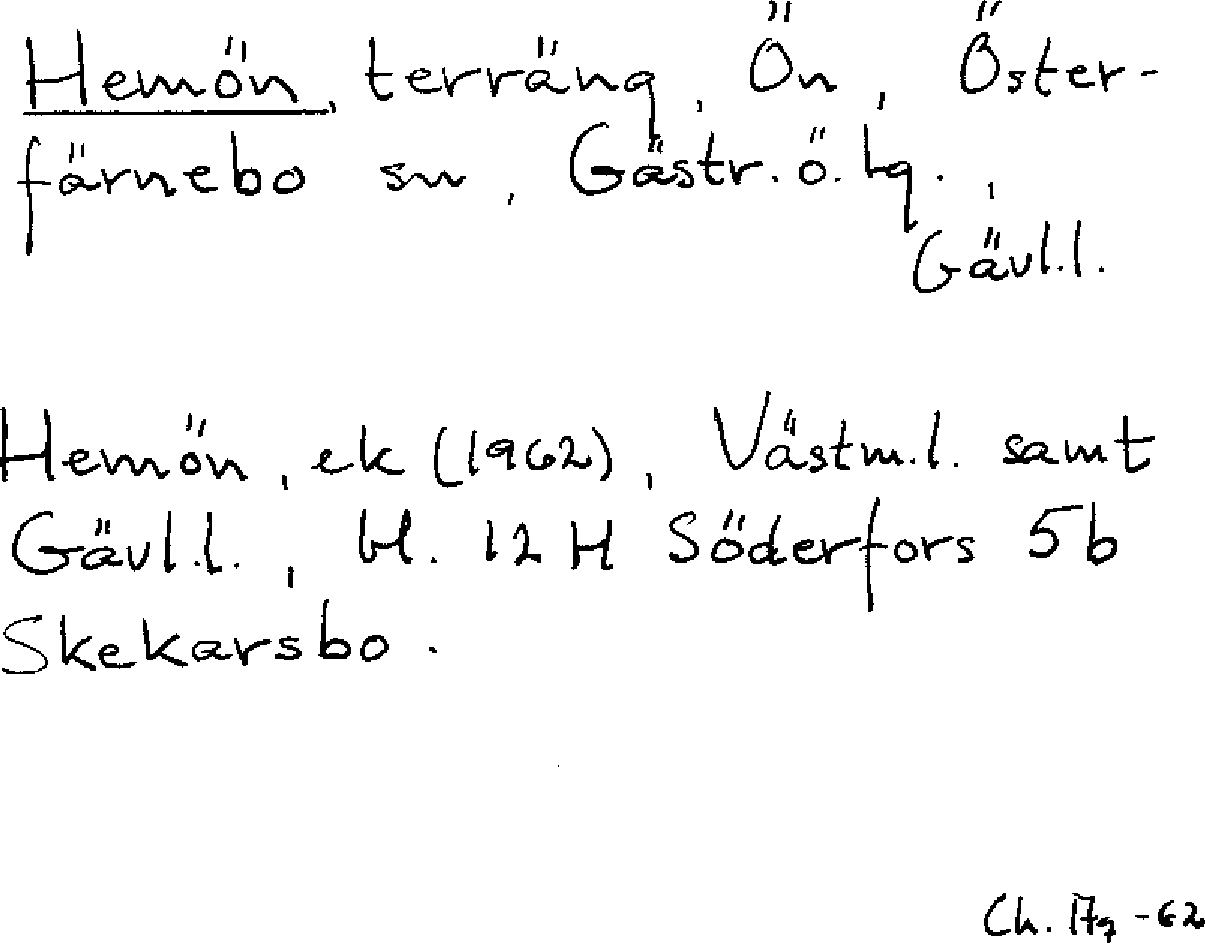 Hemön, terräng, Ön, Öster-
färnebo sn, Gästr. ö. tg.,
Gävl.l.
Hemön, ek (1962), Västm.l. samt
Gävl.l., bl. 12 H Söderfors 5b
Skekarsbo.
Ch. -62